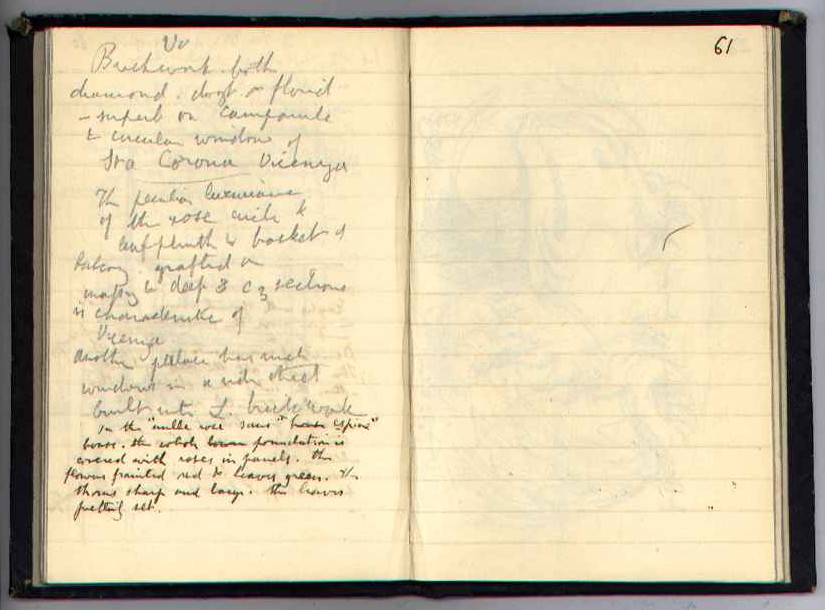 Vo
Brickwork both
diamond. dogt &amp; florid
- superb on Campanile
& circular window of
Sta Corona Vicenza
The peculiar luxuriance
of the rose circle &
leafplinth & basket of
balcony grafted on
massy & deep 3 C 3 sections
is characteristic of
Vicenza
Another palace has such
windows in a side street
built into L. brickwork
In the "nulle rose sans" house
house. the whole lower foundation is
covered with roses in panels. the
flowers painted red & leaves green. The
thorns sharp and large. the leaves
prettily set.
61